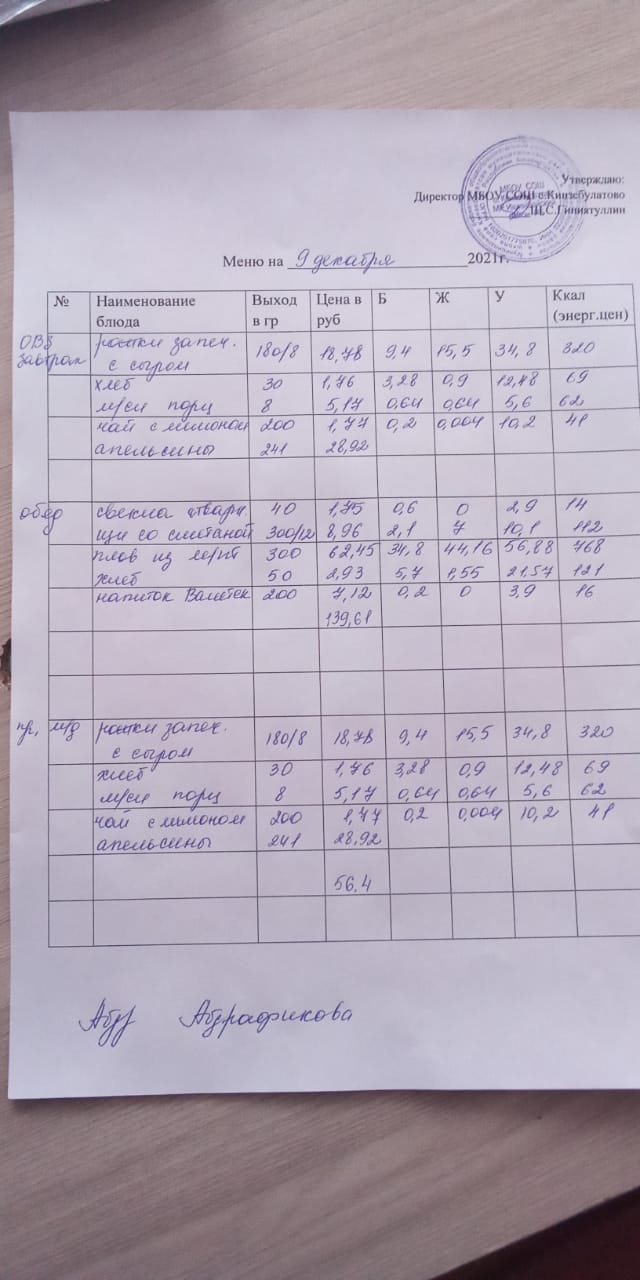 МБОУ СОШ
Утверждаю:
Директор МБОУ СОШ с.Кинзебулатово
Ш.С.Гиниятуллин
Меню на 9 декабря 2021г.
№ Наименование блюда Выход в гр Цена в руб Б Ж У Ккал (энерг.цен)
ОВЗ завтрак рожки запеч. с сыром 180/8 18,78 9,4 15,5 34,8 320
хлеб 30 1,76 3,28 0,9 12,48 69
м/сл порц 8 5,17 0,64 0,64 5,6 62
чай с лимоном 200 1,77 0,2 0,004 10,2 41
апельсины 241 28,92
обед свекла отварн. 40 1,75 0,6 0 2,9 14
щи со сметаной 300/12 8,96 2,1 7 10,1 112
плов из 300 62,45 34,8 44,16 56,88 768
хлеб 50 2,93 5,7 1,55 21,57 121
напиток Валетек 200 7,12 0,2 0 3,9 16
139,61
пр, м/д рожки запеч. с сыром 180/8 18,78 9,4 15,5 34,8 320
хлеб 30 1,76 3,28 0,9 12,48 69
м/сл порц 8 5,17 0,64 0,64 5,6 62
чай с лимоном 200 1,77 0,2 0,004 10,2 41
апельсины 241 28,92
56,4
Абдрафикова